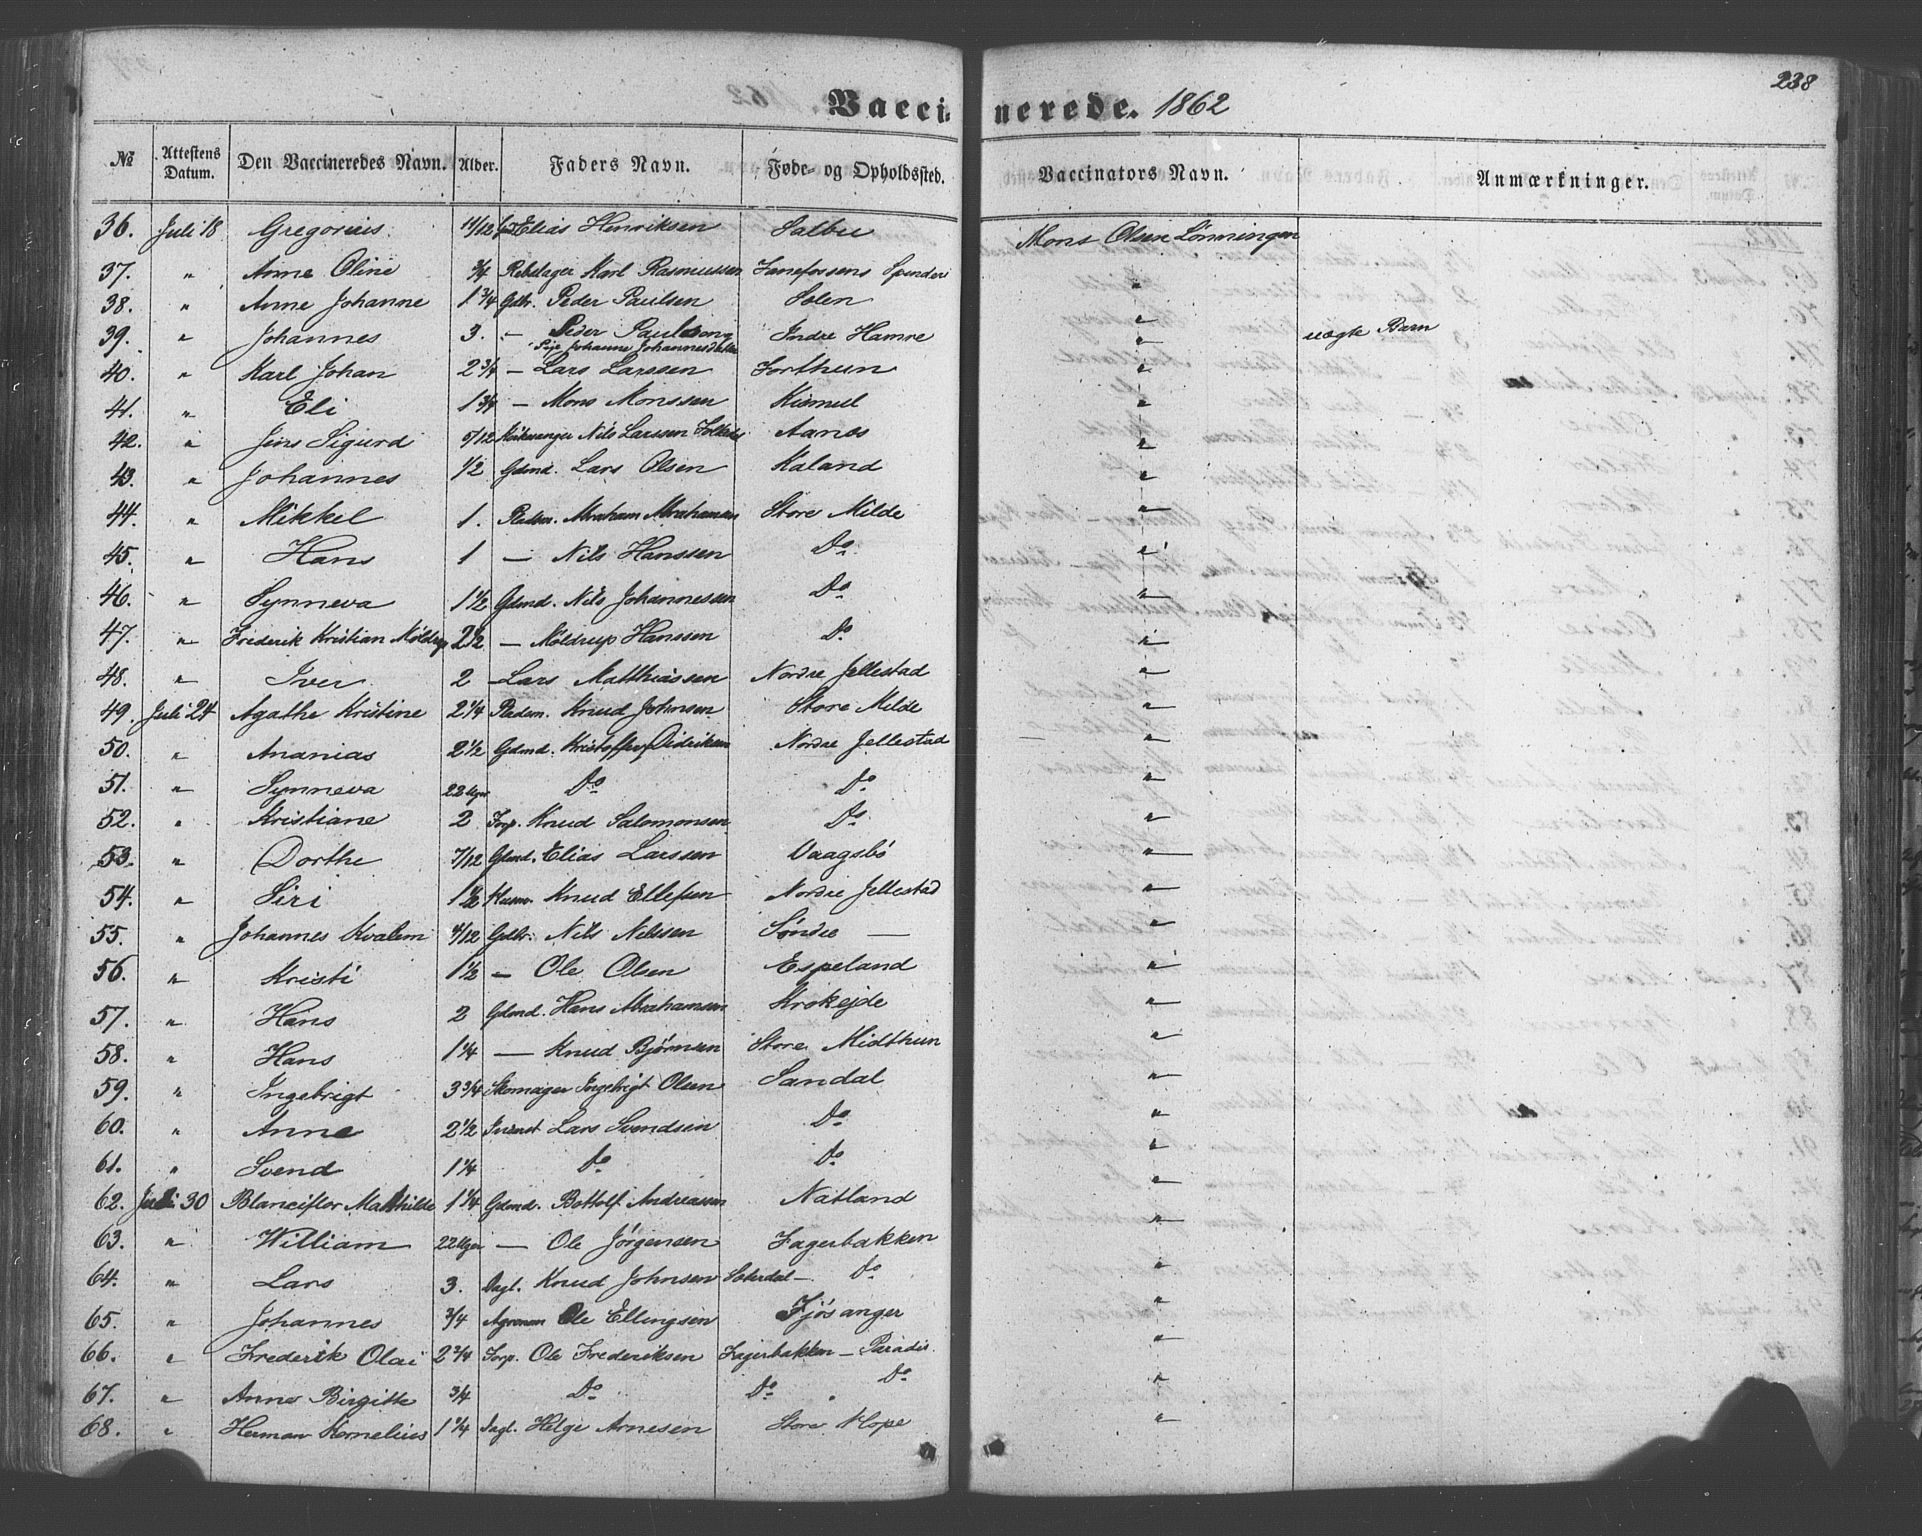 238
Vaccinerede. 1862
№ Attestens Datum. Den Vaccineredes Navn. Alder. Faders Navn. Føde- og Opholdssted. Vaccinators Navn. Anmærkninger.
36. Juli 18 Gregorius 11/12 Elias Henriksen Salbu Mons Olsen Lønningen
37. " Anne Oline 3/4 Rebslager Karl Rasmussen Janefossens Spinderi "
38. " Anne Johanne 1 3/4 Gdbr. Peder Paulsen Solen "
39. " Johannes 3. — Peder Paulsen Indre Hamre " uægte Barn
Pige Johanne Johannesdatter
40. " Karl Johan 2 3/4 — Lars Larssen Forthun "
41. " Eli 1 3/4 — Mons Monssen Kismul "
42. " Jens Sigurd 5/12 Kirkesanger Nils Larssen Aanes "
43. " Johannes 1/2 Gdmd. Lars Olsen Kaland "
44. " Mikkel 1. Pladsm. Abraham Abrahamsen Store Milde "
45. " Hans 1 — Nils Hanssen Do "
46. " Synneva 1 1/2 Gdmd. Nils Johannessen Do "
47. " Frederik Kristian Møldrup 2 1/2 — Møldrup Hanssen Do "
48. " Iver 2 — Lars Matthiassen Nordre Jellestad "
49. Juli 24 Agathe Kristine 2 1/4 Pladsm. Knud Johnsen Store Milde "
50. " Ananias 2 1/2 Gdmd. Kristoffer Didriksen Nordre Jellestad "
51. " Synneva 22 Uger Do Do "
52. " Kristiane 2 Inds. Knud Salomonsen Do "
53. " Dorthe 7/12 Gdmd. Elias Larssen Vaagsbø "
54. " Siri 1 1/2 Husm. Knud Ellefsen Nordre Jellestad "
55. " Johannes Kvalem 4/12 Gdbr. Nils Nilssen Søndre — "
56. " Kristi 1 1/2 — Ole Olsen Espeland "
57. " Hans 2 Gdmd. Hans Abrahamsen Krokejde "
58. " Hans 1 1/4 — Knud Bjørnsen Store Midthun "
59. " Ingebrigt 3 3/4 Skomager Ingebrigt Olsen Sandal "
60. " Anne 2 1/2 Lars Svendsen Do "
61. " Svend 1 1/4 Do Do "
62. Juli 30 Blanceflor Mathilde 1 1/4 Gdmd. Bottolf Andreassen Natland "
63. " William 22 Uger — Ole Jørgensen Fagerbakken "
64. " Lars 3. Dagl. Knud Johnsen Sæterdal — Do "
65. " Johannes 3/4 Agronom Ole Ellingsen Fjøsanger "
66. " Frederik Olai 2 3/4 Ole Frederiksen Fagerbakken — Paradis. "
67. " Anne Birgitte 3/4 Do Do Do "
68. " Herman Kornelius 1 1/4 Dagl. Helge Arnesen Store Hope "